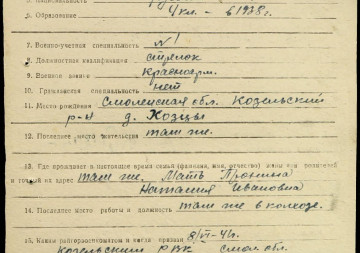 6. Образование 4 кл. - в 1928 г.
7. Военно-учетная специальность № 1
8. Должностная квалификация стрелок
9. Военное звание Красноарм.
10. Гражданская специальность нет
11. Место рождения Смоленская обл. Козельский
р-н д. Хозцы
12. Последнее место жительства там же.
13. Где проживает в настоящее время семья (фамилия, имя, отчество) жены или родителей
и точный их адрес там же. Мать Пронина
Наталия Ивановна
14. Последнее место работы и должность там же в колхозе.
15. Каким райгорвоенкоматом и когда призван 8/VI-41г.
Козельским РВК Смол. обл.